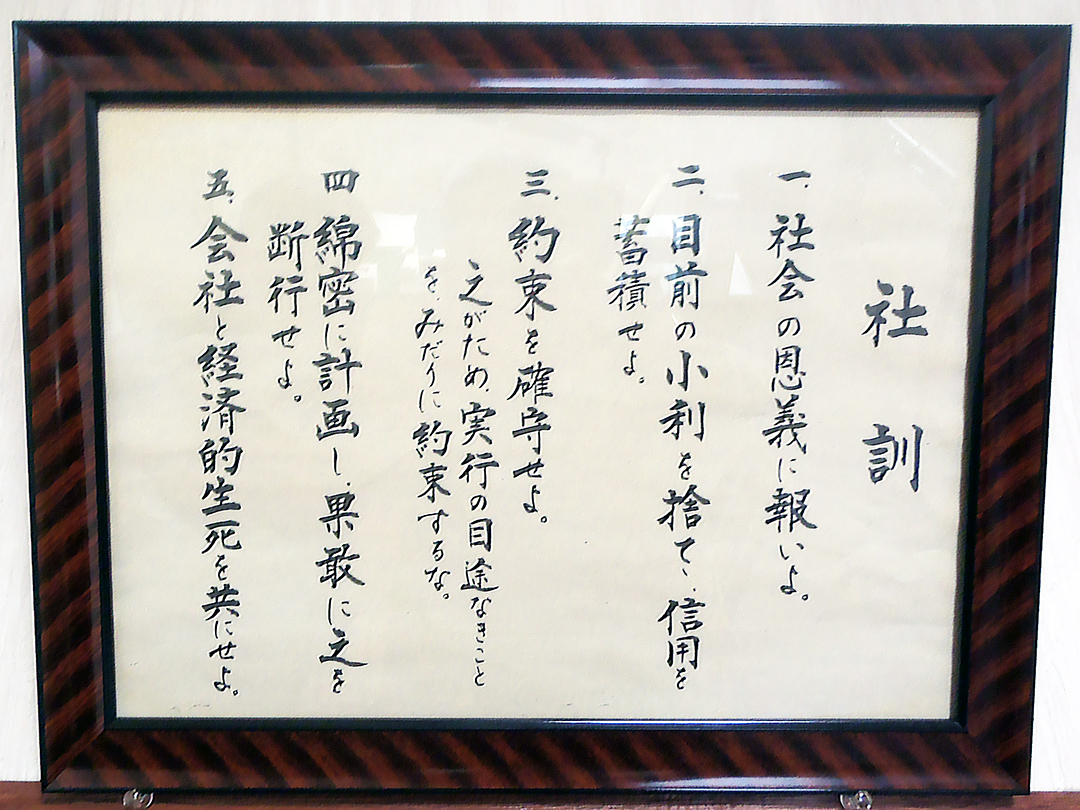 社訓
一、社会の恩義に報いよ。
二、目前の小利を捨て、信用を
蓄積せよ。
三、約束を確守せよ。
之がため、実行の目途なきこと
を、みだりに約束するな。
四 綿密に計画し、果敢に之を
断行せよ。
五、会社と経済的生死を共にせよ。